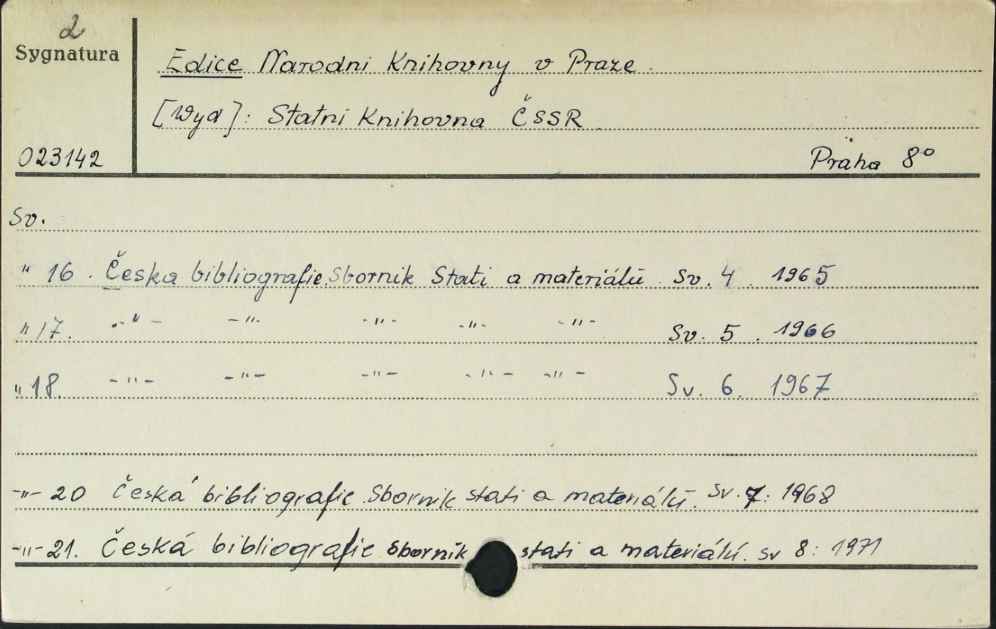 2
Sygnatura
Edice Narodni Knihovny v Praze.
[Wyd]: Statni Knihovna ČSSR
023142
Praha 8°
Sv.
" 16. Česka bibliografie. Sbornik Stati a materiálů. Sv. 4. 1965
" 17. -"- -"- -"- -"- -"- Sv. 5. 1966
" 18. -"- -"- -"- -"- -"- Sv. 6. 1967
-"- 20 Česká bibliografie. Sbornik stati a materiálů. Sv. 7: 1968
-"- 21. Česká bibliografie. Sbornik stati a materiálů. sv 8: 1971